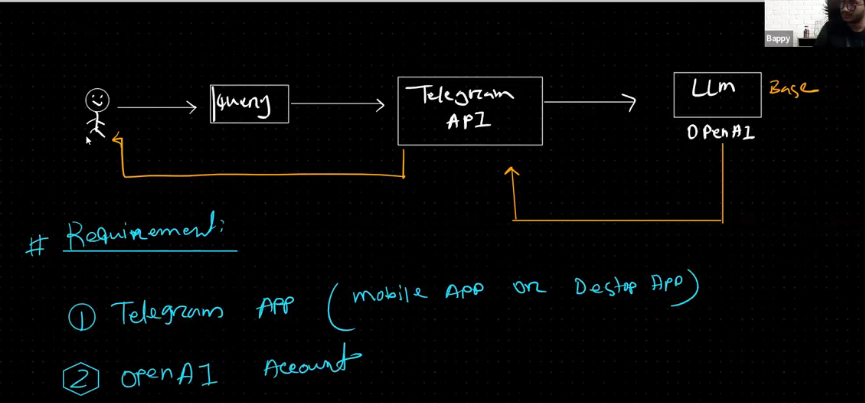 Query
Telegram
API
LLM
Base
OPenAI
# Requirement:
① Telegram APP (mobile APP or Destop APP)
② OpenAI Account
Bappy